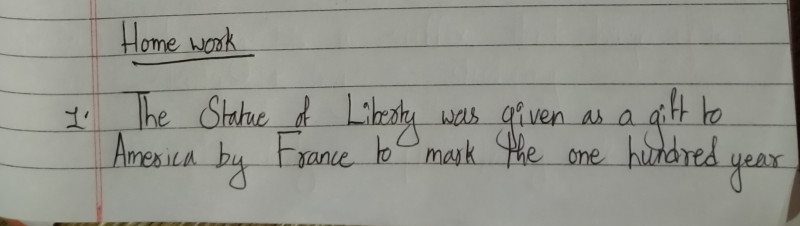 Home work
1. The Statue of Liberty was given as a gift to
America by France to mark the one hundred year